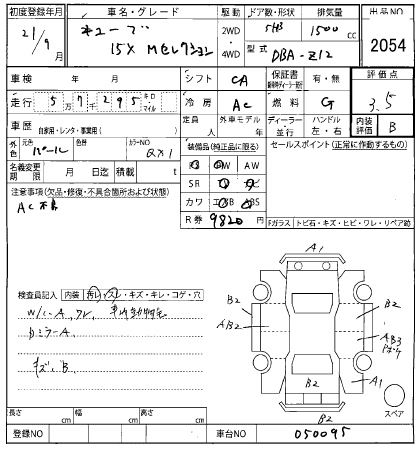 初度登録年月 車名・グレード 駆動 ドア数・形状 排気量 出品NO
21/9月 キューブ 2WD 5HB 1500 cc 2054
15X Mセレクション 4WD 型式 DBA-Z12
車検 年 月 シフト CA 保証書 有・無 評価点
走行 57295 キロ・マイル 冷房 AC 燃料 G 3.5
車歴 自家用・レンタ・事業用( ) 定員 人 外車モデル 年 ディーラー 並行 ハンドル 左・右 内装評価 B
外色 元色 パール 色替 カラーNO QX1 装備品(純正品に限る) セールスポイント(正常に作動するもの)
名義変更期限 月 日迄 積載 t AW
注意事項(欠品・修復・不具合箇所および状態) SR
AC不良 カワ ABS
R券 9820 円
Fガラス トビ石・キズ・ヒビ・ワレ・リペア跡
A1
検査員記入 内装 汚レ・スレ・キズ・キレ・コゲ・穴
B2 B2
W/ハーA,ワレ,
AB2 AB3
ミラーA,
キズ,B,
B2 A1
スペア
B2
長さ cm 幅 cm 高さ cm
登録NO 車台NO 050095